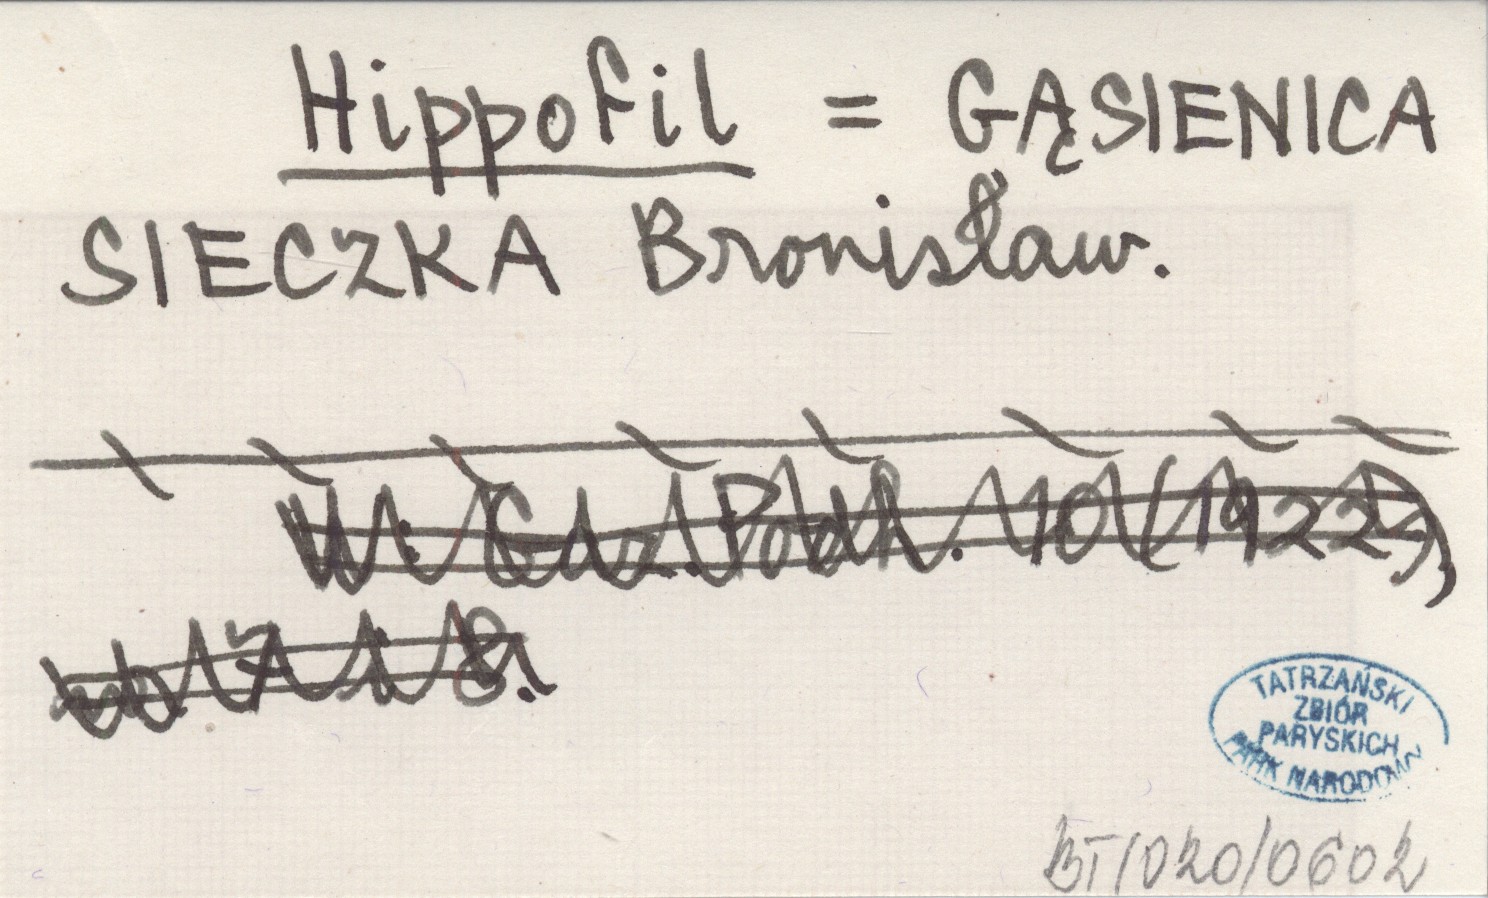 Hippofil = GĄSIENICA
SIECZKA Bronisław.
W: Gaz. Podh. 10 (1922),
7 i 8.
TATRZAŃSKI
ZBIÓR
PARYSKICH
PARK NARODOWY
BT/020/0602